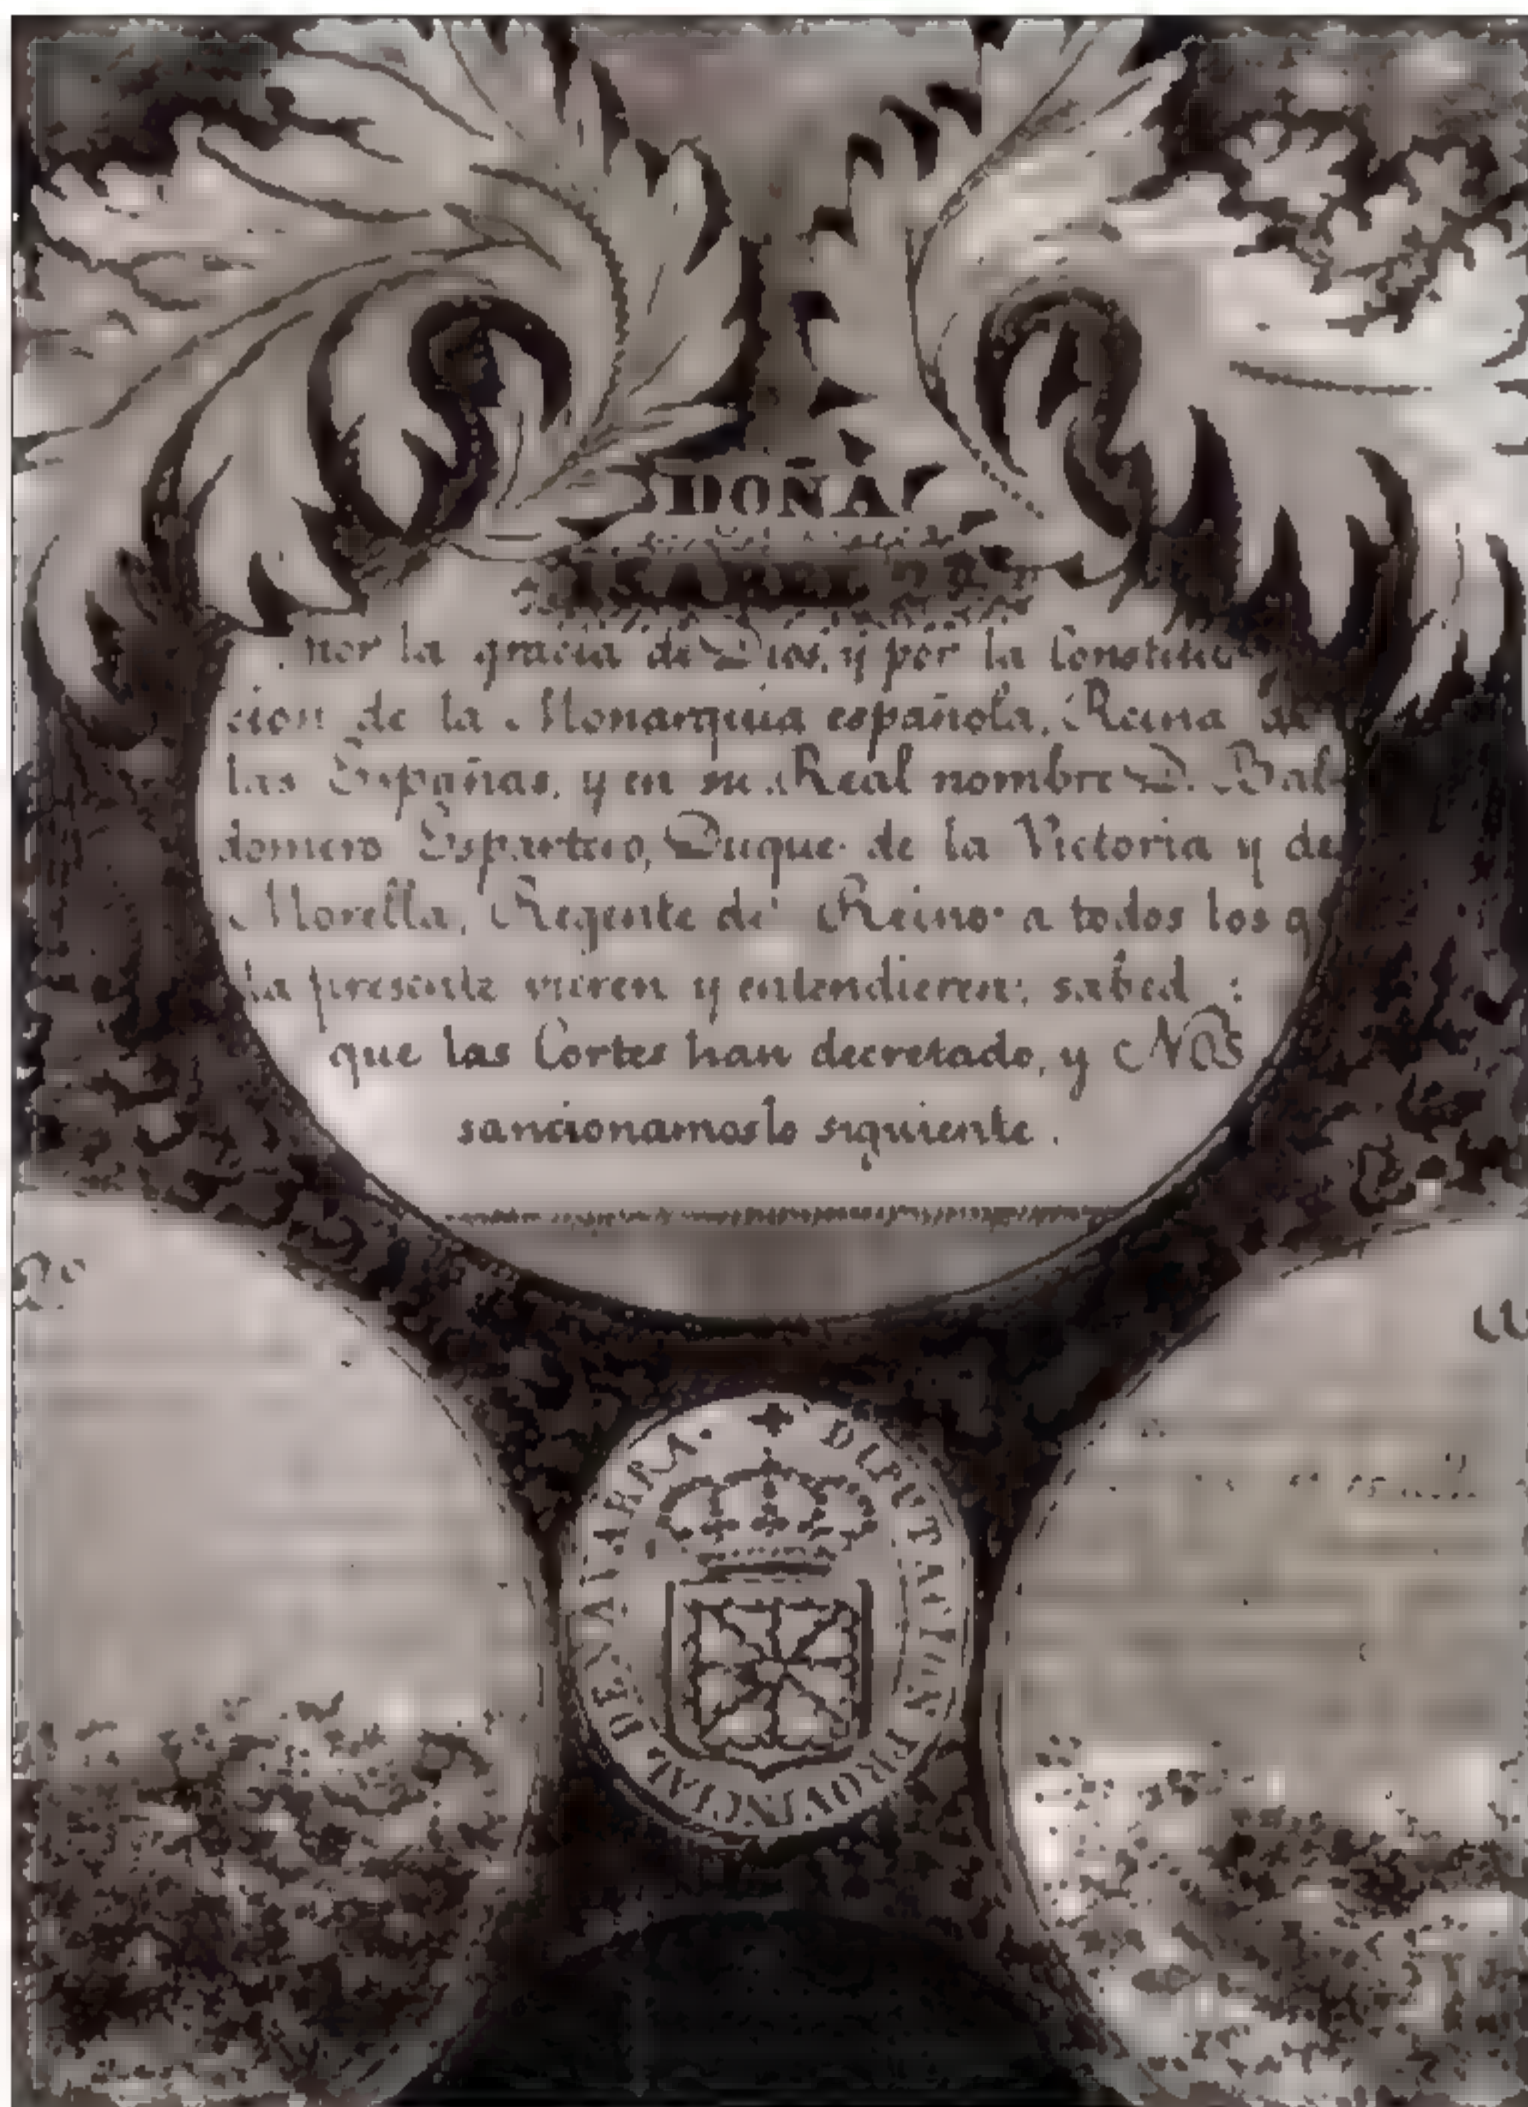 DOÑA
ISABEL 2ª
por la gracia de Dios, y por la Constitu
cion de la Monarquia española, Reina de
las Españas, y en su Real nombre D. Bal-
domero Espartero, Duque de la Victoria y de
Morella, Regente del Reino a todos los q
la presente vieren y entendieren; sabed :
que las Cortes han decretado, y NOS
sancionamos lo siguiente .
DIPUTACION PROVINCIAL DE NAVARRA.